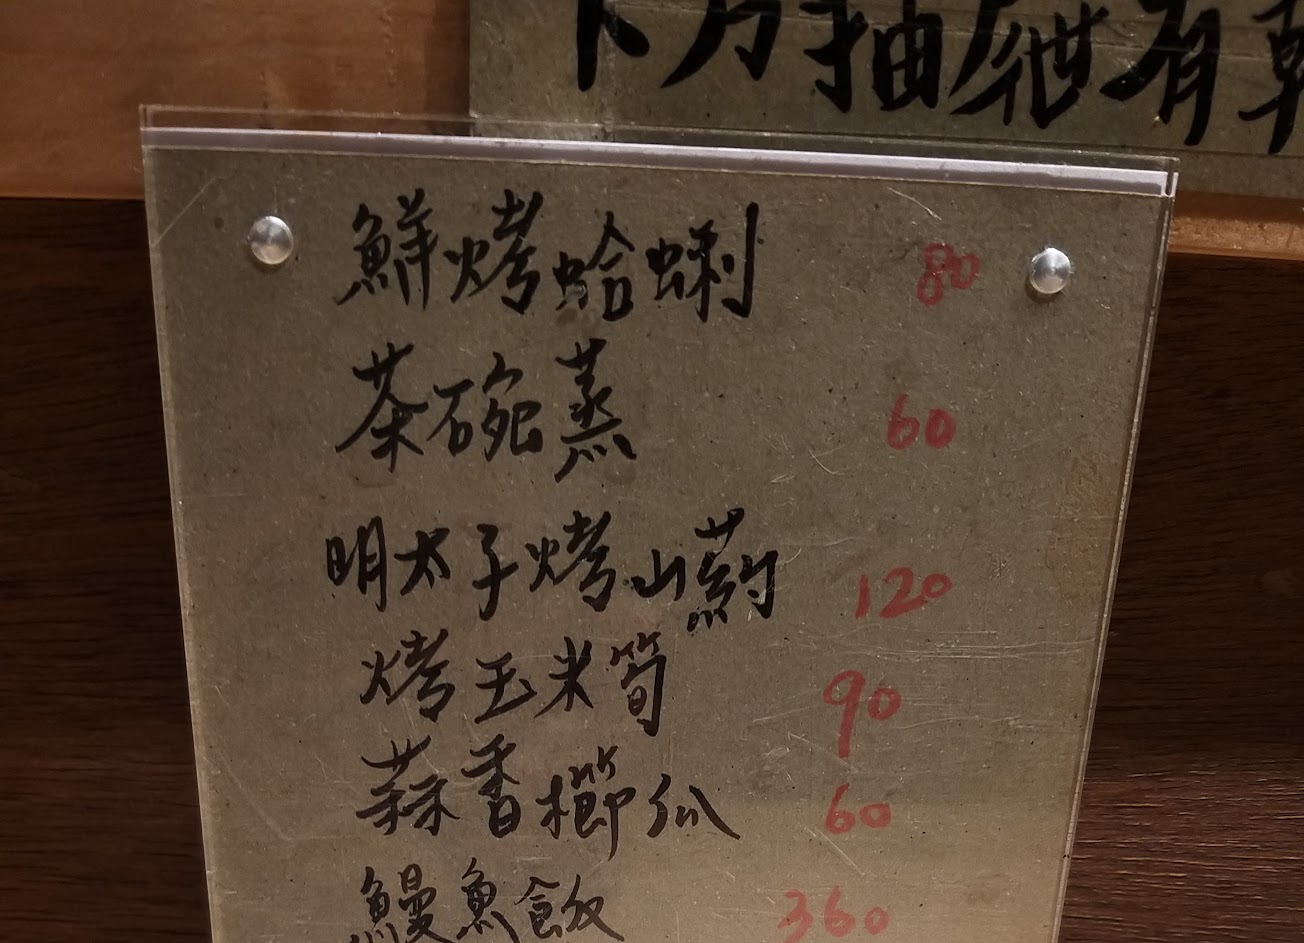 下方抽屜有乾
鮮烤蛤蜊 80
茶碗蒸 60
明太子烤山藥 120
烤玉米筍 90
蒜香櫛瓜 60
鰻魚飯 360